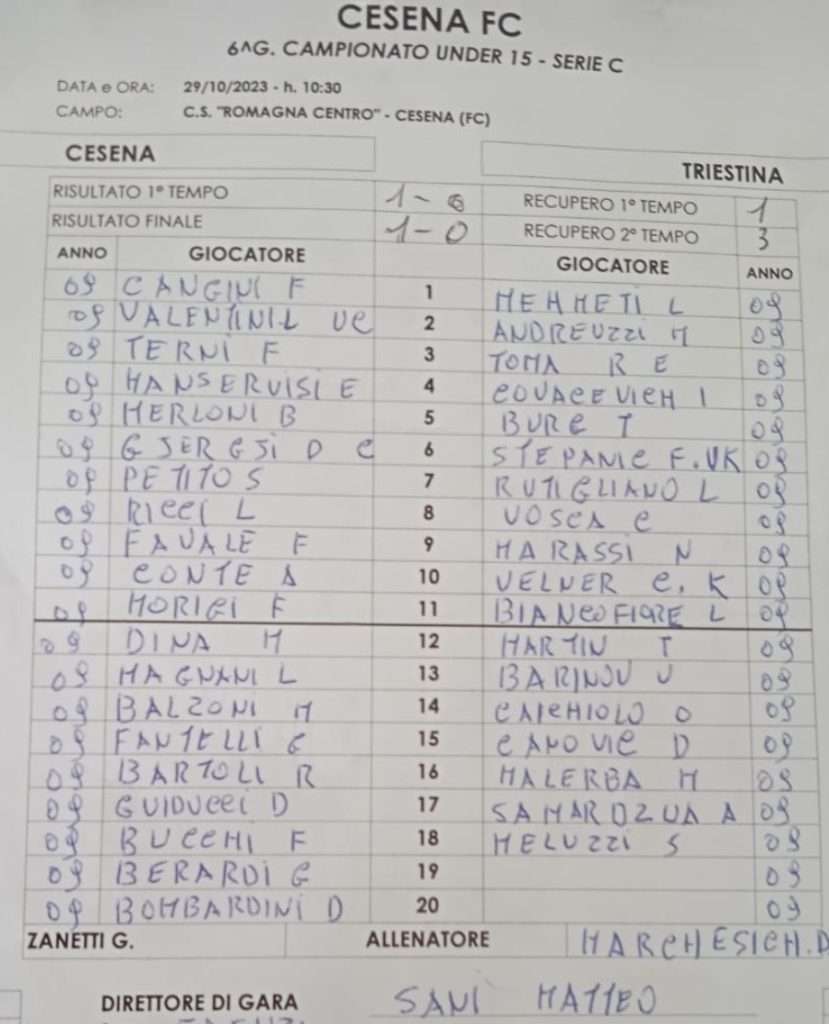 CESENA FC
6^G. CAMPIONATO UNDER 15 - SERIE C
DATA e ORA: 29/10/2023 - h. 10:30
CAMPO: C.S. "ROMAGNA CENTRO" - CESENA (FC)
CESENA TRIESTINA
RISULTATO 1° TEMPO 1-0 RECUPERO 1° TEMPO 1
RISULTATO FINALE 1-0 RECUPERO 2° TEMPO 3
ANNO GIOCATORE GIOCATORE ANNO
09 CANGINI F 1 MEHMETI L 09
09 VALENTINI L VC 2 ANDREUZZI M 09
09 TERNI F 3 TOMA R E 09
09 MANSERVISI E 4 COVACEVICH I 09
09 MERLONI B 5 BURC T 09
09 GJERGJI D C 6 STEPANIC F. VK 09
09 PETITO S 7 RUTIGLIANO L 09
09 RICCI L 8 VOSCA C 09
09 FAVALE F 9 MARASSI N 09
09 CONTE A 10 VELNER C. K 09
09 MORIGI F 11 BIANCOFIORE L 09
09 DINA M 12 MARTIN T 09
09 MAGNANI L 13 BARINOV V 09
09 BALZONI M 14 CAICHIOLO O 09
09 FANTELLI G 15 CANOVIC D 09
09 BARTOLI R 16 MALERBA M 09
09 GUIDUCCI D 17 SAMARDZIJA A 09
09 BUCCHI F 18 MELUZZI S 09
09 BERARDI G 19 09
09 BOMBARDINI D 20 09
ZANETTI G. ALLENATORE MARCHESICH. D
DIRETTORE DI GARA SANI MATTEO